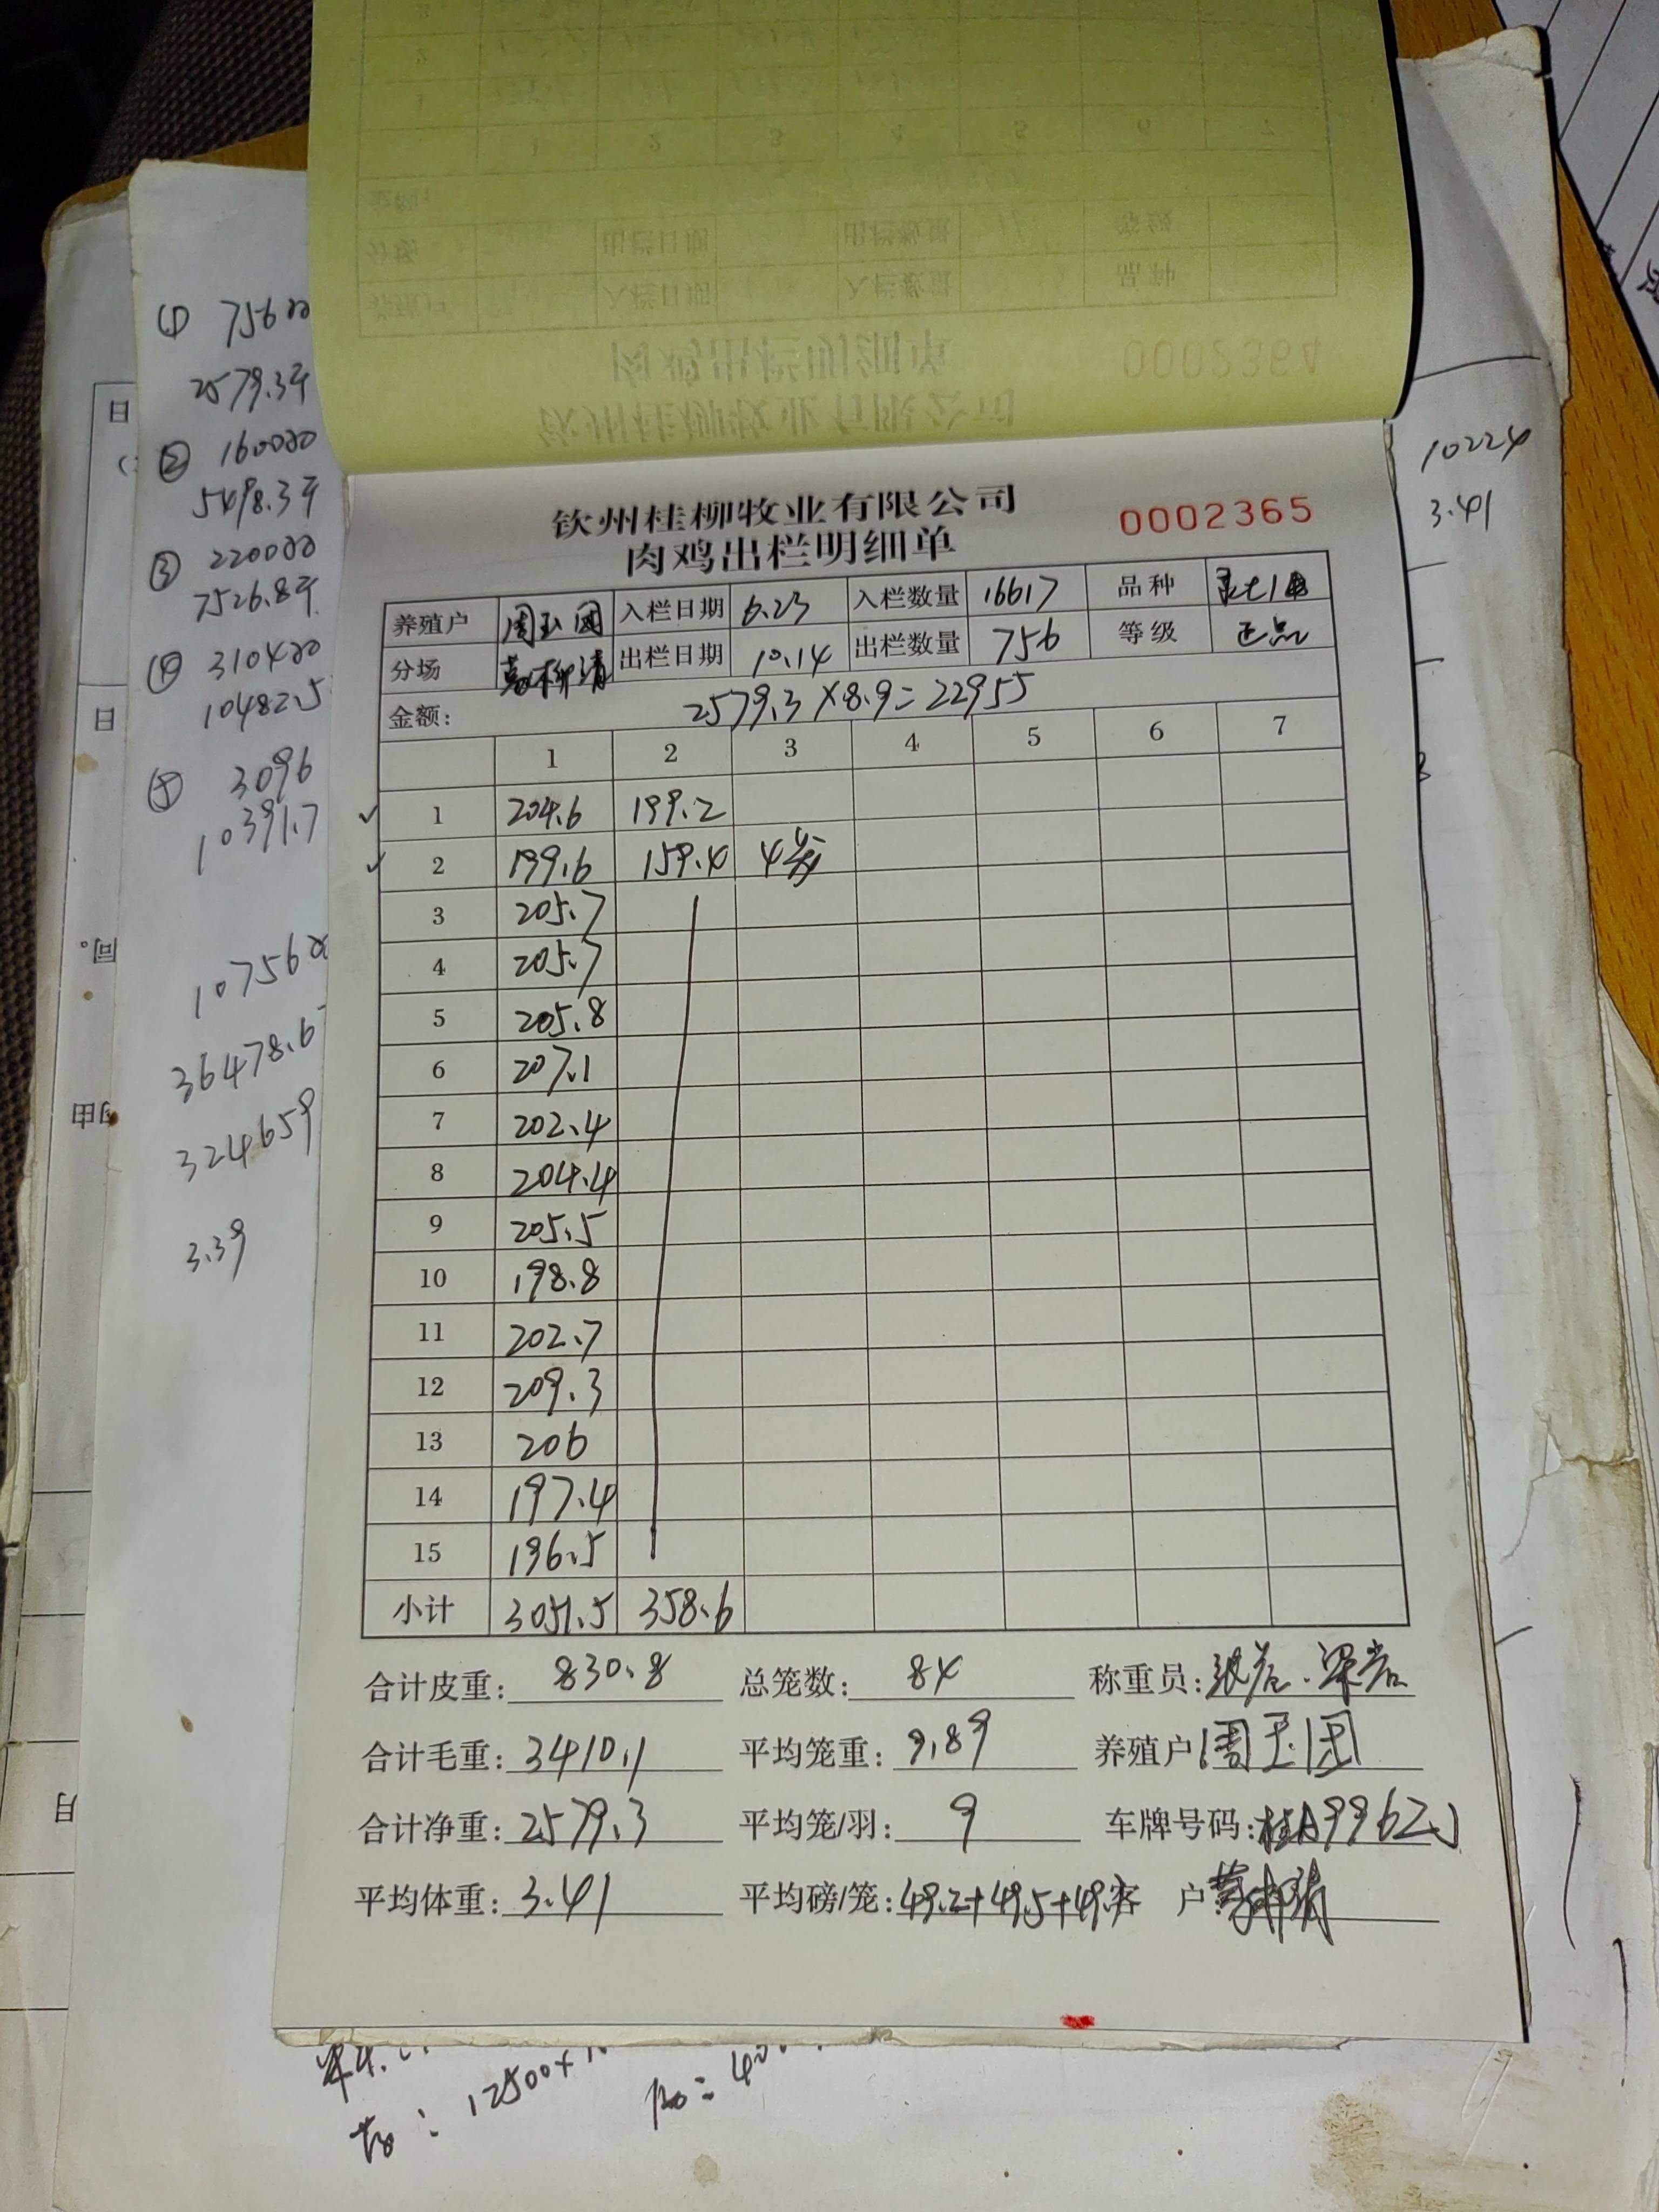 钦州桂柳牧业有限公司
肉鸡出栏明细单
0002365
养殖户 周玉团 入栏日期 6.23 入栏数量 16617 品种
分场 出栏日期 10.14 出栏数量 756 等级 正品
金额: 2579.3×8.9=22955
1 2 3 4 5 6 7
1 204.6 199.2
2 199.6 159.4 4
3 205.7
4 205.7
5 205.8
6 207.1
7 202.4
8 204.4
9 205.5
10 198.8
11 202.7
12 209.3
13 206
14 197.4
15 196.5
小计 3051.5 358.6
合计皮重: 830.8 总笼数: 84 称重员:
合计毛重: 3410.1 平均笼重: 9.89 养殖户 周玉团
合计净重: 2579.3 平均笼/羽: 9 车牌号码: 桂A9962
平均体重: 3.41 平均磅/笼: 49.2+49.5+49. 客户
① 756
2579.3斤
② 1600
5498.3斤
③ 2200
7526.8斤
④ 3104
10482.5
⑤ 3096
10391.7
10756
36478.6
324659
3.39
10224
3.41
0002364
肉鸡出栏明细单
钦州桂柳牧业有限公司
日
日
同。
由
月
12500+